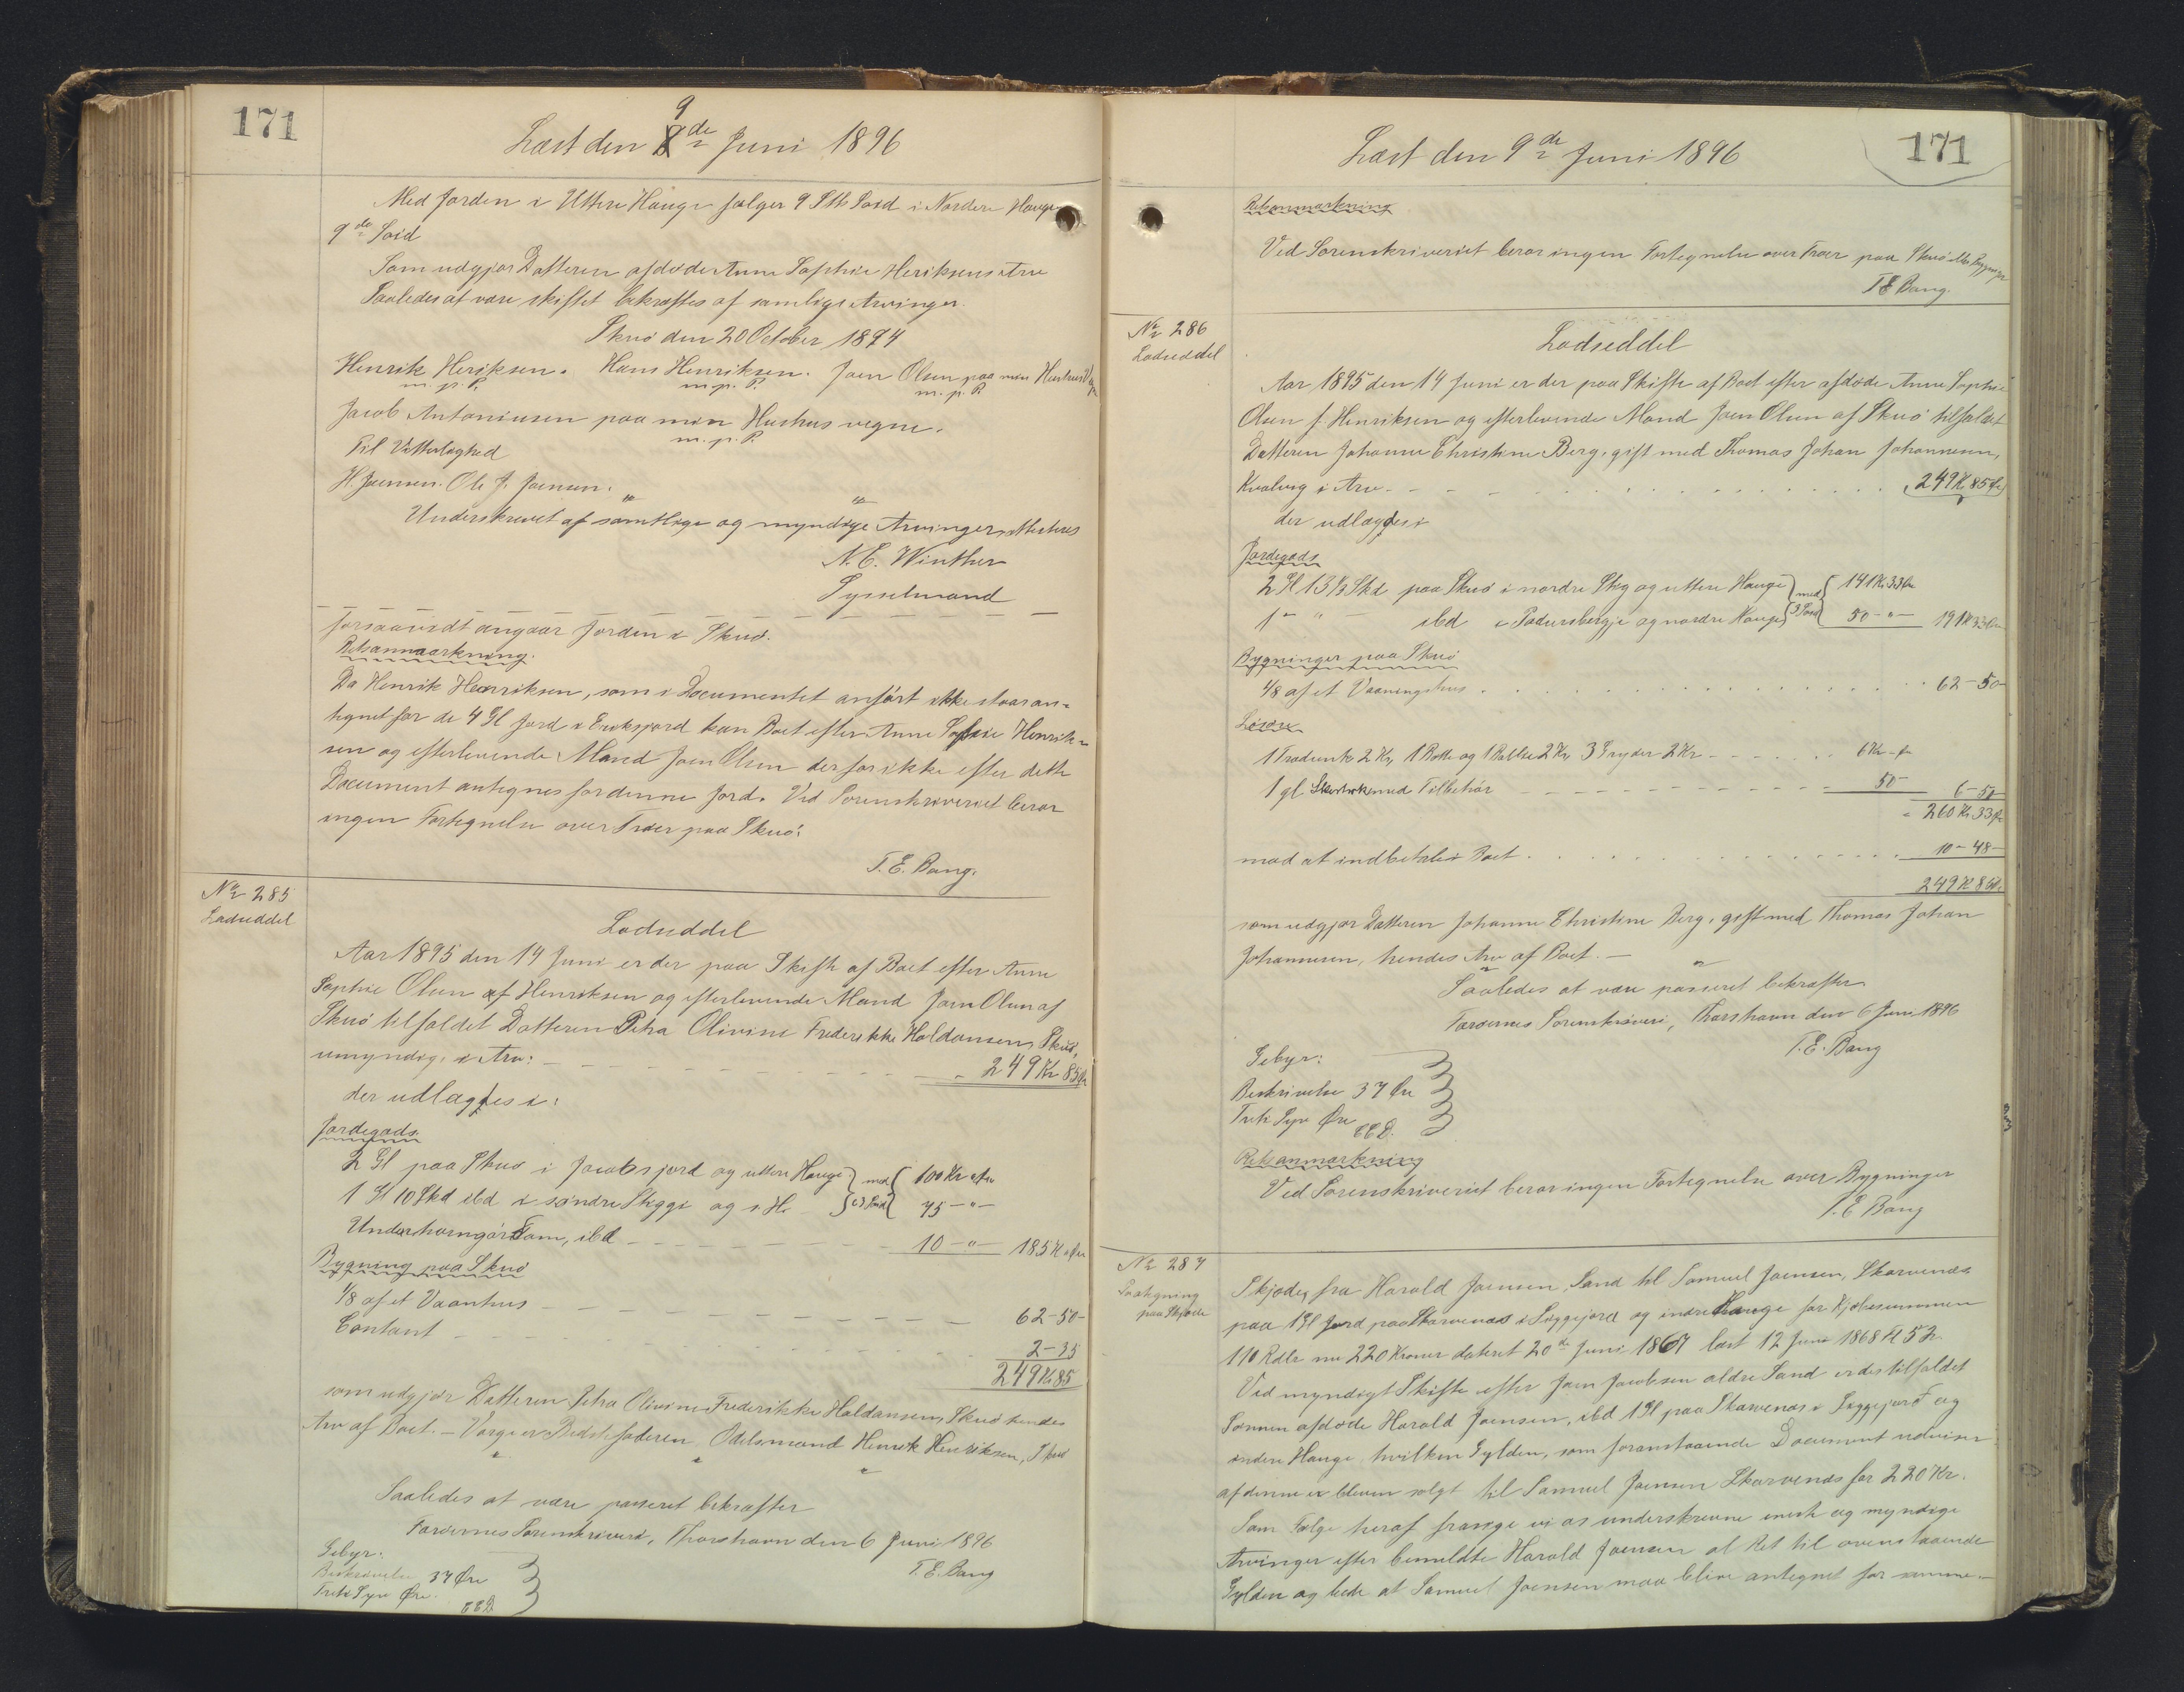 171
Læst den 9de Juni 1896
Med Jorden i Uttere Hauge følger 9 Stk Soid i Nordere Hauge
9de Soid
Som udgjør Datteren afdøde Anne Sophie Heriksens Arv
Saaledes at være skiftet bekræftes af samlige Arvinger.
Skuø den 20 October 1874
Henrik Heriksen. Hans Henriksen. Joen Olsen paa min Hustrus V
m. p. P. m. p. P. m. p. P.
Jacob Antoniusen paa min Hustrus vegne.
m. p. P.
Til Vitterlighed
H. Joensen. Ole J. Joensen.
Underskrevet af samtlige og myndige Arvinger, attesteres
N. C. Winther
Sysselmand
forsaavidt angaar Jorden i Skuø.
Retsanmærkning.
Da Henrik Henriksen, som i Documentet anført ikke staar an-
tegnet for de 4 Gl Jord i Eriksjord kan Boet efter Anne Sophie Henrik-
sen og efterlevende Mand Joen Olsen derfor ikke efter dette
Document antegnes for denne Jord. Ved Sorenskriveriet beror
ingen Fortegnelse over Træer paa Skuø.
T. E. Bang.
No 285
Lodseddel
Lodseddel
Aar 1895 den 14 Juni er der paa Skifte af Boet efter Anne
Sophie Olsen af Henriksen og efterlevende Mand Joen Olsen af
Skuø tilfaldet Datteren Petra Olivine Frederikke Haldansen, Skuø,
umyndig, i Arv: 249 Kr 85 Ør
der udlagdes i:
Jordegods.
2 Gl paa Skuø i Jacobsjord og uttere Hauge med 100 Kr " Ør
1 Gl 10 Skd ibd i søndre Skigge og i H. 3 Soid 75 - " -
Underhorngørdam, ibd 10 - " - 185 K " Ør
Bygning paa Skuø
1/8 af et Vaanhus 62-50-
Contant 2-35
249 Kr 85
som udgjør Datteren Petra Olivine Frederikke Haldansens, Skuø hendes
Arv af Boet. - Værge er Bedstefaderen Odelsmand Henrik Henriksen, Skuø
Saaledes at være passeret bekræfter
Færøernes Sorenskriveri, Thorshavn den 6 Juni 1896
T. E. Bang
Gebyr:
Beskrivelse 37 Øre
Treti Syv Øre.
171
Læst den 9de Juni 1896
Retsanmærkning
Ved Sorenskriveriet beror ingen Fortegnelse over Træer paa Skuø eller Bygninger
T E Bang.
No 286
Lodseddel
Lodseddel
Aar 1895 den 14 Juni er der paa Skifte af Boet efter afdøde Anne Sophie
Olsen f. Henriksen og efterlevende Mand Joen Olsen af Skuø tilfaldet
Datteren Johanne Christine Berg, gift med Thomas Johan Johannesen,
Kvalvig i Arv. 249 K 85 Ør
der udlagdes i
Jordegods
2 Gl 13 1/3 Skd paa Skuø i nordre Skig og uttere Hauge med 141 Kr 33 Ør
1 - " - ibd i Padursbergje og nordre Hauge 3 Soid 50 - " - 191 K 33 Ør
Bygninger paa Skuø
1/8 af et Vaaningshus 62-50
Løsøre
1 Trædunk 2 Kr, 1 Rotte og 1 Balke 2 Kr, 3 Gryder 2 Kr 6 Kr - Ø
1 gl. med Tilbehør 50 6-50
260 Kr 33 Ør
mod at indbetale i Boet 10-48-
249 K 85 Ør
som udgjør Datteren Johanne Christine Berg, gift med Thomas Johan
Johannesen, hendes Arv af Boet. -
Saaledes at være passeret bekræfter
Færøernes Sorenskriveri, Thorshavn den 6 Juni 1896
T. E. Bang
Gebyr:
Beskrivelse 37 Øre
Treti Syv Øre
Retsanmærkning
Ved Sorenskriveriet beror ingen Fortegnelse over Bygninger
T. E Bang
No 287
Paategning
paa Skjøde
Skjøde, fra Harald Joensen, Sand til Samuel Joensen, Skarvenæs
paa 1 Gl Jord paa Skarvenæs i Siggejord og indre Hauge for Kjøbesummen
110 Rdlr nu 220 Kroner dateret 20de Juni 1867 læst 12 Juni 1868 Fl 52
Ved myndigt Skifte efter Joen Jacobsen ældre Sand er des tilfaldet
Sønnen afdøde Harald Joensen, ibd 1 Gl paa Skarvenæs i Siggejord og
indere Hauge, hvilken Gylden, som foranstaaende Document udviser
af denne er bleven solgt til Samuel Joensen Skarvenæs for 220 Kr.
Som Følge heraf frasige vi os underskrevne eneste og myndige
Arvinger efter bemeldte Harald Joensen al Ret til ovenstaaende
Gylden og bede at Samuel Joensen maa blive antegnet for samme. -